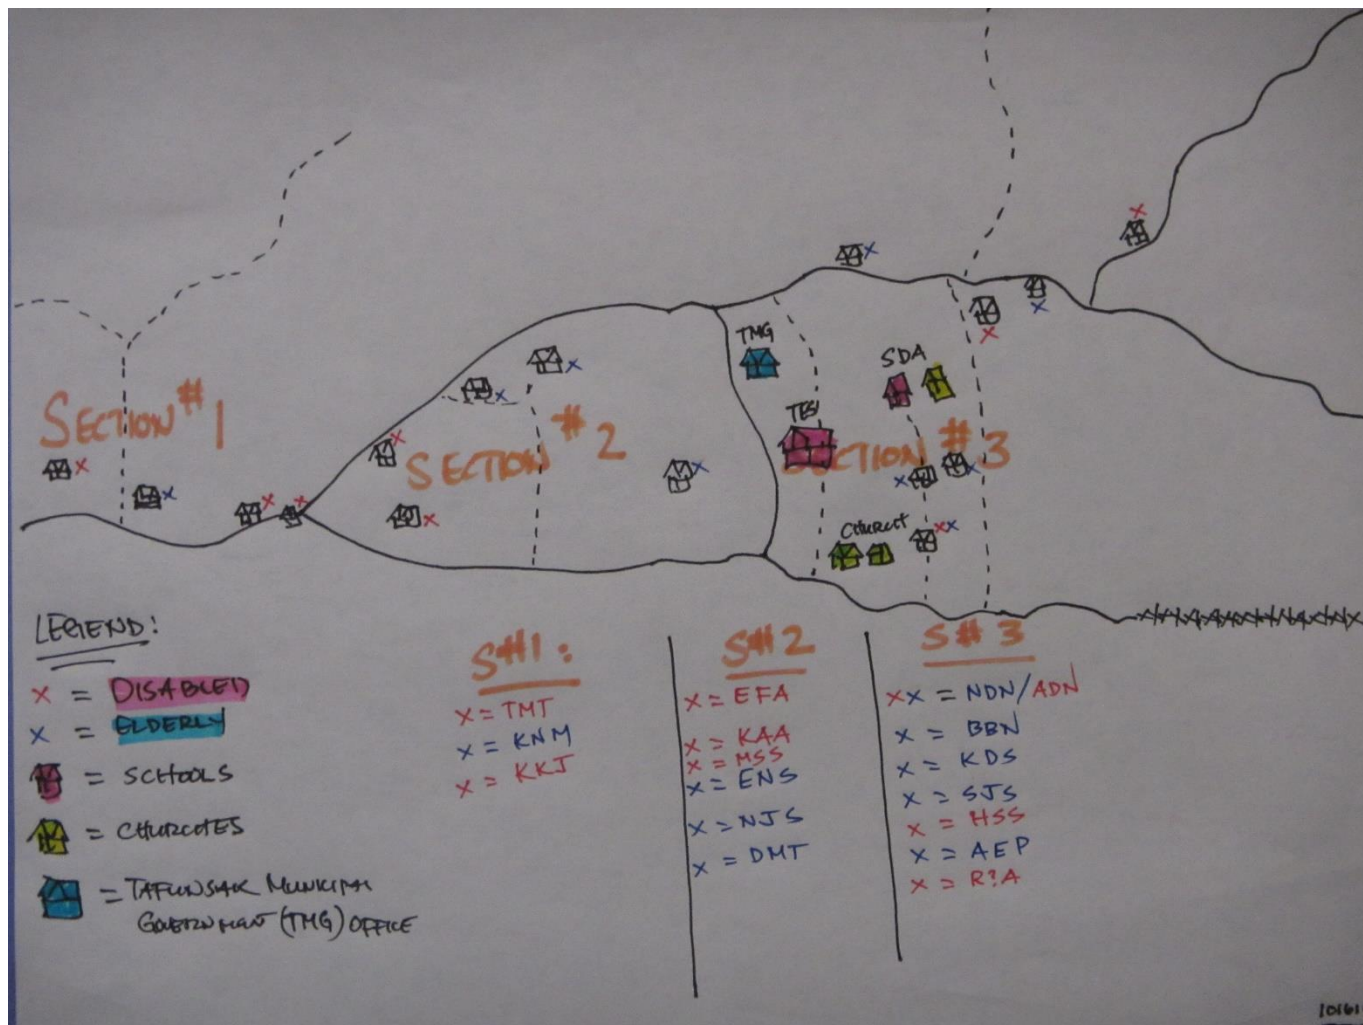 TMG
SDA
TES
SECTION #1
SECTION #2
SECTION #3
CHURCH
LEGEND:
X = DISABLED
X = ELDERLY
= SCHOOLS
= CHURCHES
= TAFUNSAK MUNICIPAL
GOVERNMENT (TMG) OFFICE
S#1:
X = TMT
X = KNM
X = KKJ
S#2
X = EFA
X = KAA
X = MSS
X = ENS
X = NJS
X = DMT
S#3
XX = NDN/ADN
X = BBN
X = KDS
X = SJS
X = HSS
X = AEP
X = R?A